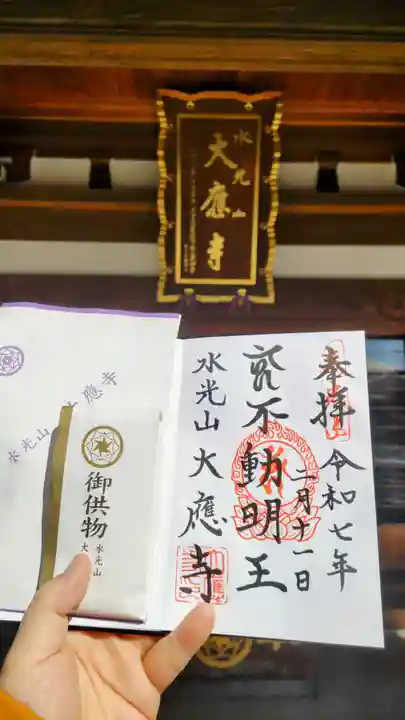 水光山
大應寺
奉拝
令和七年
二月十一日
不動明王
水光山 大應寺
水光山 大應寺
御供物
水光山
大